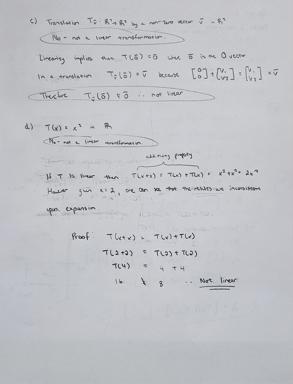 c) Translation T_v̄: ℝ²→ℝ² by a non-zero vector v̄ ∈ ℝ²
No - not a linear transformation
Linearity implies that T(ō) = ō where ō is the 0 vector
In a translation T_v̄(ō) = v̄ because [0 0] + [v₁ v₂] = [v₁ v₂] = v̄
Therefore T_v̄(ō) ≠ ō ∴ not linear
d) T(x) = x² in ℝ
No - not a linear transformation
additivity property
If T is linear then T(x+x) = T(x) + T(x) = x² + x² = 2x²
However given x = 2, one can see that the results are inconsistent
upon expansion
Proof: T(x+x) = T(x) + T(x)
T(2+2) = T(2) + T(2)
T(4) = 4 + 4
16 ≠ 8 ∴ Not linear